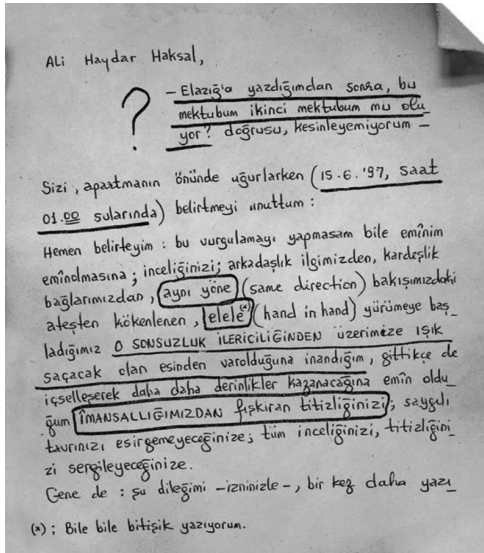 Ali Haydar Haksal,
? – Elazığ'a yazdığımdan sonra, bu
mektubum ikinci mektubum mu olu_
yor? doğrusu, kesinleyemiyorum –
Sizi, apartmanın önünde uğurlarken (15.6.'97, saat
01.00 sularında) belirtmeyi unuttum :
Hemen belirteyim : bu vurgulamayı yapmasam bile eminim
eminolmasına ; inceliğinizi ; arkadaşlık ilgimizden, kardeşlik
bağlarımızdan, aynı yöne (same direction) bakışımızdaki
ateşten kökenlenen, elele(*) (hand in hand) yürümeye baş_
ladığımız O SONSUZLUK İLERİCİLİĞİNDEN üzerimize ışık
saçacak olan esinden varolduğuna inandığım, gittikçe de
içselleşerek daha daha derinlikler kazanacağına emin oldu_
ğum İMANSALLIĞIMIZDAN fışkıran titizliğinizi ; saygılı
tavrınızı esirgemeyeceğinize ; tüm inceliğinizi, titizliğini_
zi sergileyeceğinize.
Gene de : şu dileğimi –izninizle–, bir kez daha yazı_
(*) ; Bile bile bitişik yazıyorum.